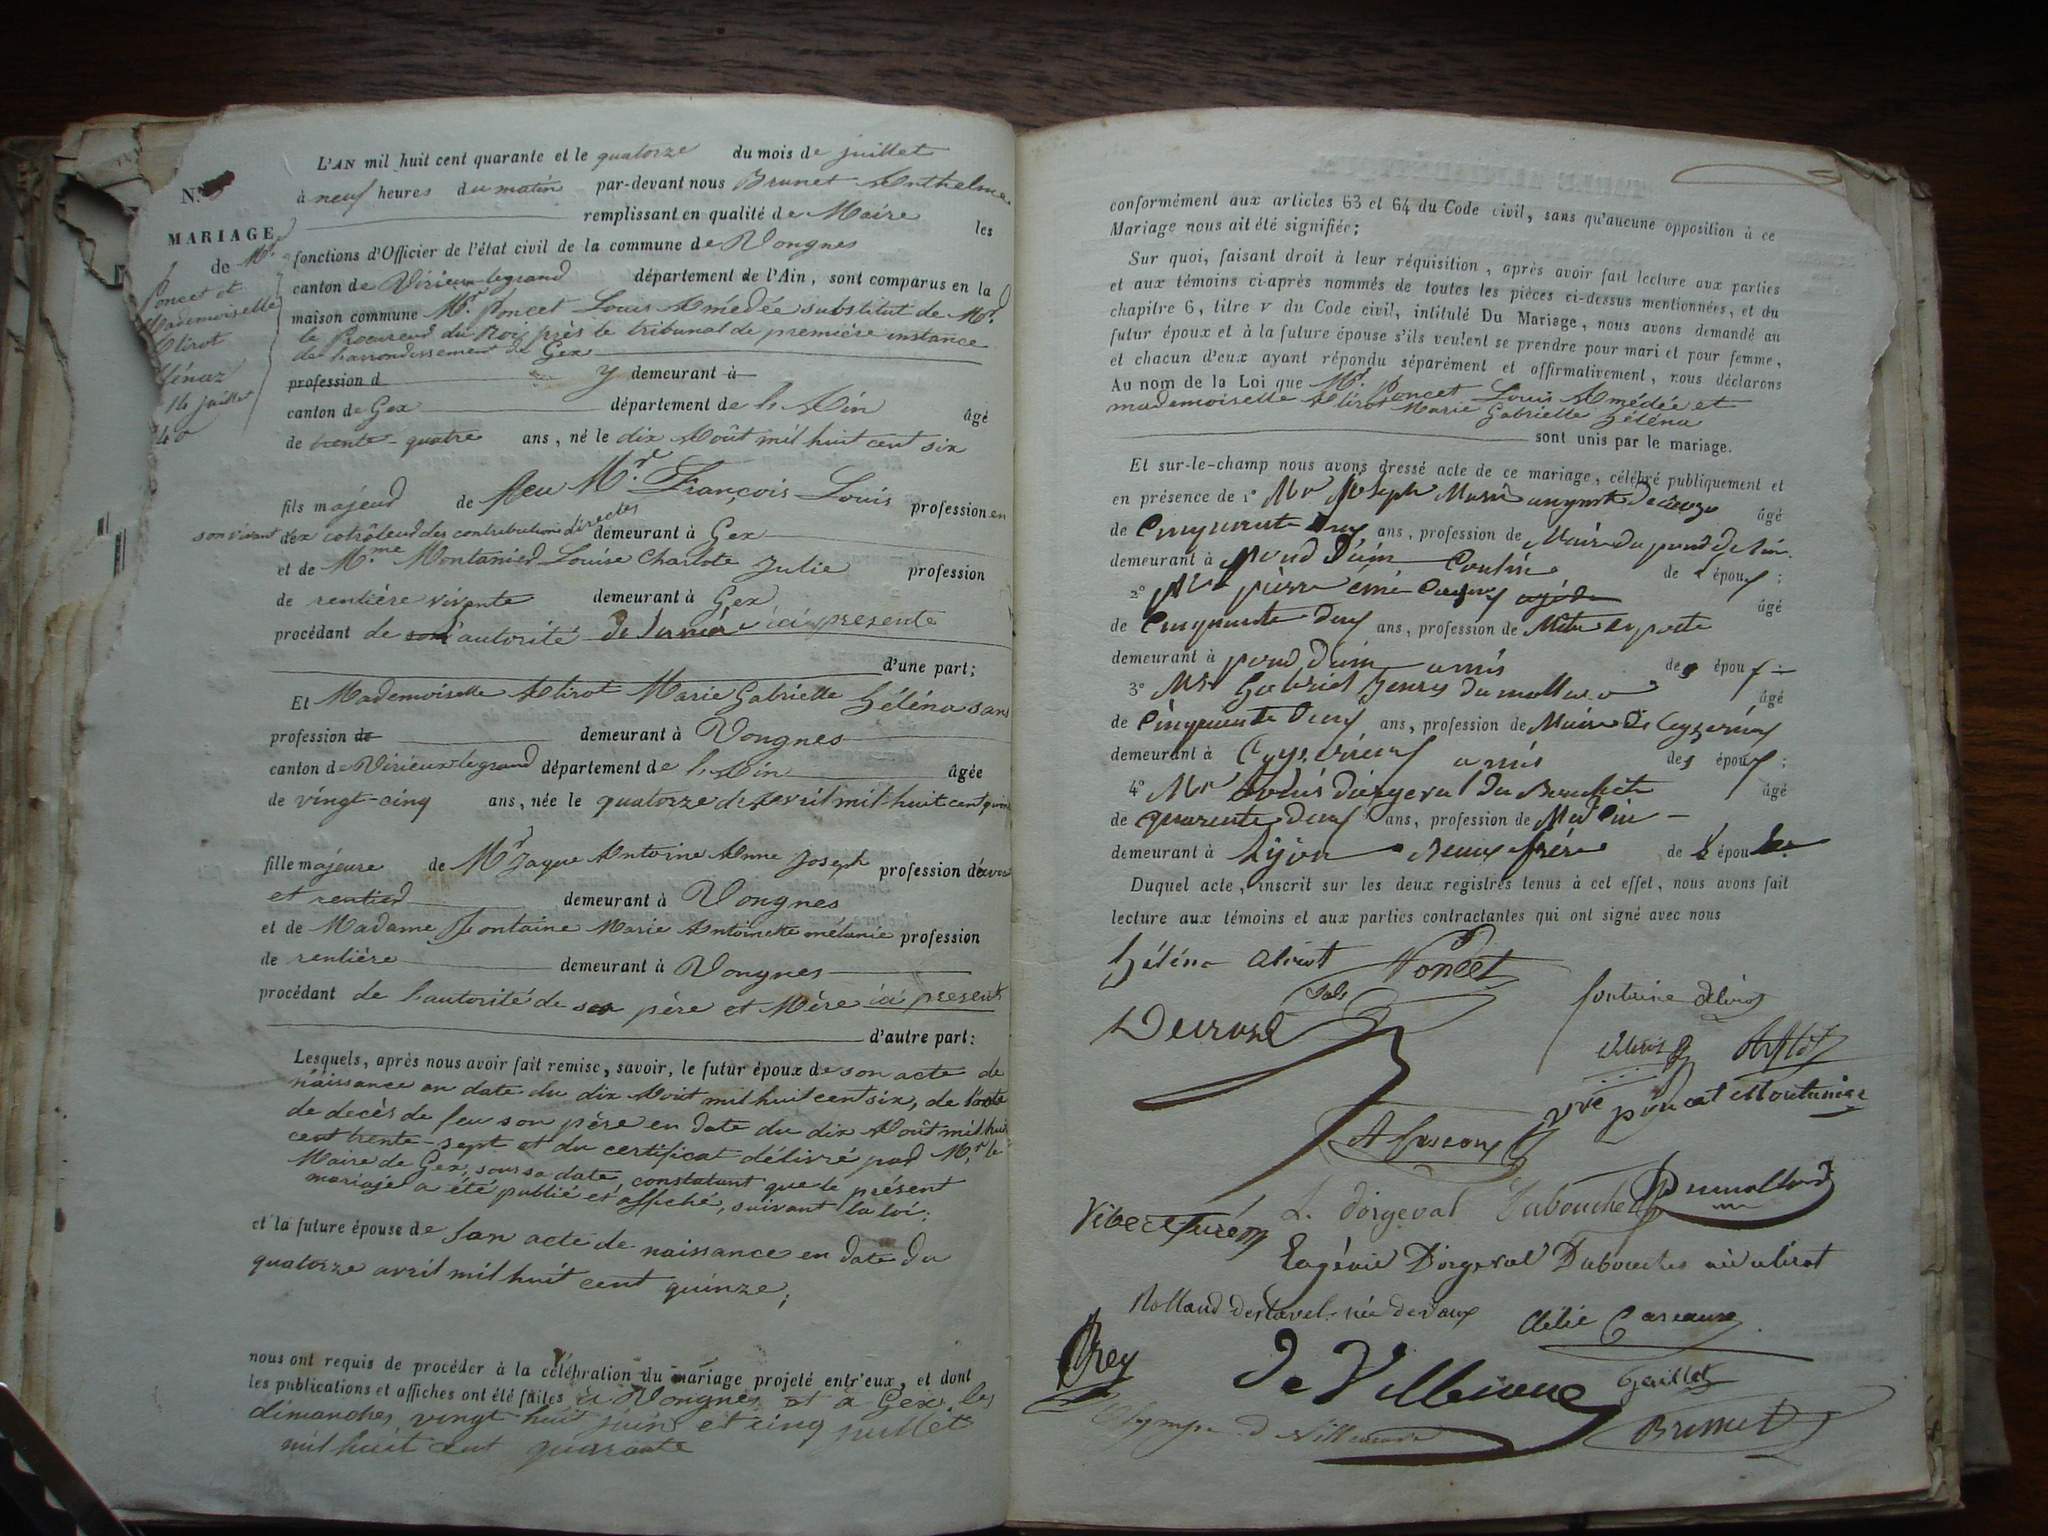 L'AN mil huit cent quarante et le quatorze du mois de juillet
à neuf heures du matin par-devant nous Brunet Anthelme
remplissant en qualité de Maire les
fonctions d'Officier de l'état civil de la commune de Vongnes
canton de Virieu-legrand département de l'Ain, sont comparus en la
maison commune Mr. Poncet Louis Amédée substitut de Mr.
le Procureur du Roi près le tribunal de première instance
de l'arrondissement de Gex
profession d y demeurant à
canton de Gex département de l'Ain âgé
de trente-quatre ans, né le dix Août mil huit cent six
fils majeur de feu Mr. François Louis profession en
son vivant d'ex cotrôleur des contributions directes demeurant à Gex
et de Mme Montanier Louise Charlote Julie profession
de rentière vivante demeurant à Gex
procédant de l'autorité de sa mère ici presente
d'une part;
Et Mademoiselle Alirot Marie Gabrielle Héléna sans
profession de demeurant à Vongnes
canton de Virieux-legrand département de l'Ain âgée
de vingt-cinq ans, née le quatorze d'avril mil huit cent quinze
fille majeure de Mr Jaque Antoine Anne Joseph profession
et rentier demeurant à Vongnes
et de Madame Fontaine Marie Antoinette mélanie profession
de rentière demeurant à Vongnes
procédant de l'autorité de ses père et Mère ici present
d'autre part:
Lesquels, après nous avoir fait remise, savoir, le futur époux de son acte de
naissance en date du dix Août mil huit cent six, de l'acte
de decès de feu son père en date du dix Août mil huit
cent trente-sept et du certificat délivré par Mr. le
Maire de Gex, sous sa date, constatant que le présent
mariage a été publié et affiché, suivant la loi;
et la future épouse de son acte de naissance en date du
quatorze avril mil huit cent quinze;
nous ont requis de procéder à la célébration du mariage projeté entr'eux, et dont
les publications et affiches ont été faites à Vongnes et à Gex les
dimanches vingt huit juin et cinq juillet
mil huit cent quarante
N.º
MARIAGE
de Mr
Poncet et
Mademoiselle
Alirot
Héléna
14 juillet
40
conformément aux articles 63 et 64 du Code civil, sans qu'aucune opposition à ce
Mariage nous ait été signifiée;
Sur quoi, faisant droit à leur réquisition, après avoir fait lecture aux parties
et aux témoins ci-après nommés de toutes les pièces ci-dessus mentionnées, et du
chapitre 6, titre v du Code civil, intitulé Du Mariage, nous avons demandé au
futur époux et à la future épouse s'ils veulent se prendre pour mari et pour femme,
et chacun d'eux ayant répondu séparément et affirmativement, nous déclarons
Au nom de la Loi que Mr. Poncet Louis Amédée et
mademoiselle Alirot Marie Gabrielle Héléna
sont unis par le mariage.
Et sur-le-champ nous avons dressé acte de ce mariage, célébré publiquement et
en présence de 1º Mr Joseph Marie âgé
de Cinquante ans, profession de Maire du pond de lin
demeurant à pond D'ain Cousin de l'épouse;
2º Mr pierre âgé
de Cinquante deux ans, profession de
demeurant à pond d'ain amis des époux;
3º Mr Gabriel henry dumollard âgé
de Cinquante deux ans, profession de Maire de Ceyzerieux
demeurant à Ceyzerieux amis des époux;
4º Mr Louis d'orgeval du Bouchet âgé
de quarente deux ans, profession de Medcin
demeurant à Lyon Beaux frère de l'épouse
Duquel acte, inscrit sur les deux registres tenus à cet effet, nous avons fait
lecture aux témoins et aux parties contractantes qui ont signé avec nous
Héléna Alirot Poncet
fontaine Alirot
Decroso
Alirot
vve poncet Montanier
L. dorgeval Dubouchet Dumollard
Eugénie D'orgeval Dubouchet née alirot
Rolland destavel née devaux Clélie
Rey de Villeneuve Gaillet
Olympe de Villeneuve Brunet